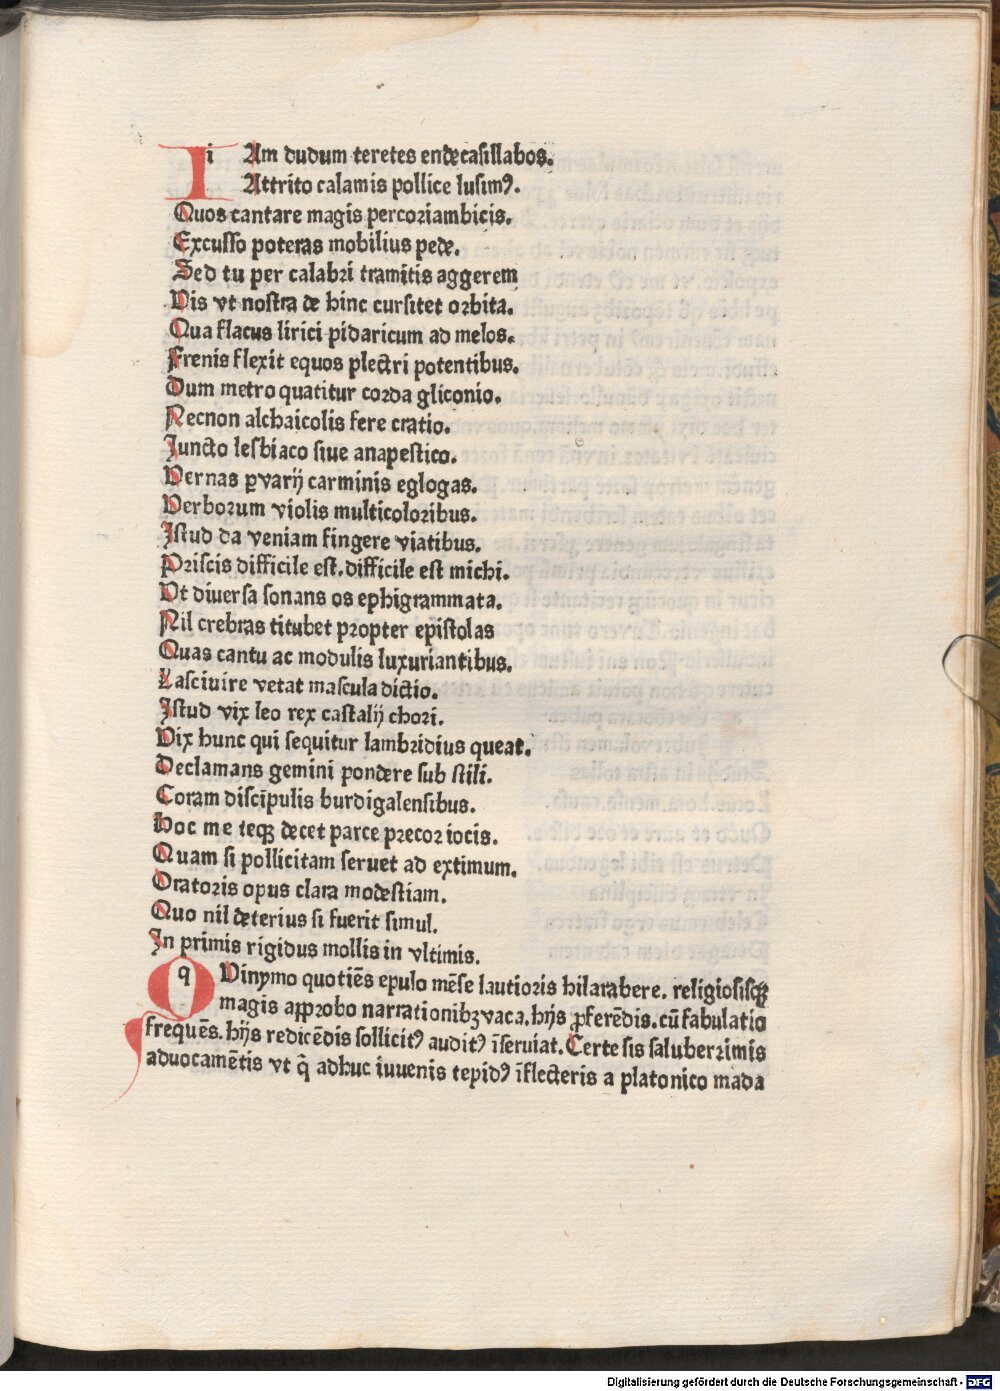 IiAm dudum teretes endecasillabos.
Attrito calamis pollice lusimꝰ.
Quos cantare magis percoriambicis.
Excusso poteras mobilius pede.
Sed tu per calabri tramitis aggerem
Vis vt nostra de hinc cursitet orbita.
Qua flacus lirici pidaricum ad melos.
Frenis flexit equos plectri potentibus.
Dum metro quatitur corda gliconio.
Necnon alchaicolis fere cratio.
Juncto lesbiaco siue anapestico.
Vernas ꝑ varij carminis eglogas.
Verborum violis multicoloribus.
Istud da veniam fingere viatibus.
Priscis difficile est. difficile est michi.
Vt diuersa sonans os ephigrammata.
Nil crebras titubet propter epistolas
Quas cantu ac modulis luxuriantibus.
Lasciuire vetat mascula dictio.
Istud vix leo rex castalij chori.
Vix hunc qui sequitur lambridius queat.
Declamans gemini pondere sub stili.
Coram discīpulis burdigalensibus.
Hoc me teqꝫ decet parce precor iocis.
Quam si pollicitam seruet ad extimum.
Oratoris opus clara modestiam.
Quo nil deterius si fuerit simul.
In primis rigidus mollis in vltimis.
QqVinymo quotiēs epulo mēse lautioris hilarabere. religiosisqꝫ
magis approbo narrationibꝫ vaca. hijs ꝓferēdis. cū fabulatio
frequēs. hijs redicēdis sollicitꝰ auditꝰ īseruiat. Certe sis saluberrimis
aduocamētis vt q̄ adhuc iuuenis tepidꝰ īflecteris a platonico mada
Digitalisierung gefördert durch die Deutsche Forschungsgemeinschaft - DFG